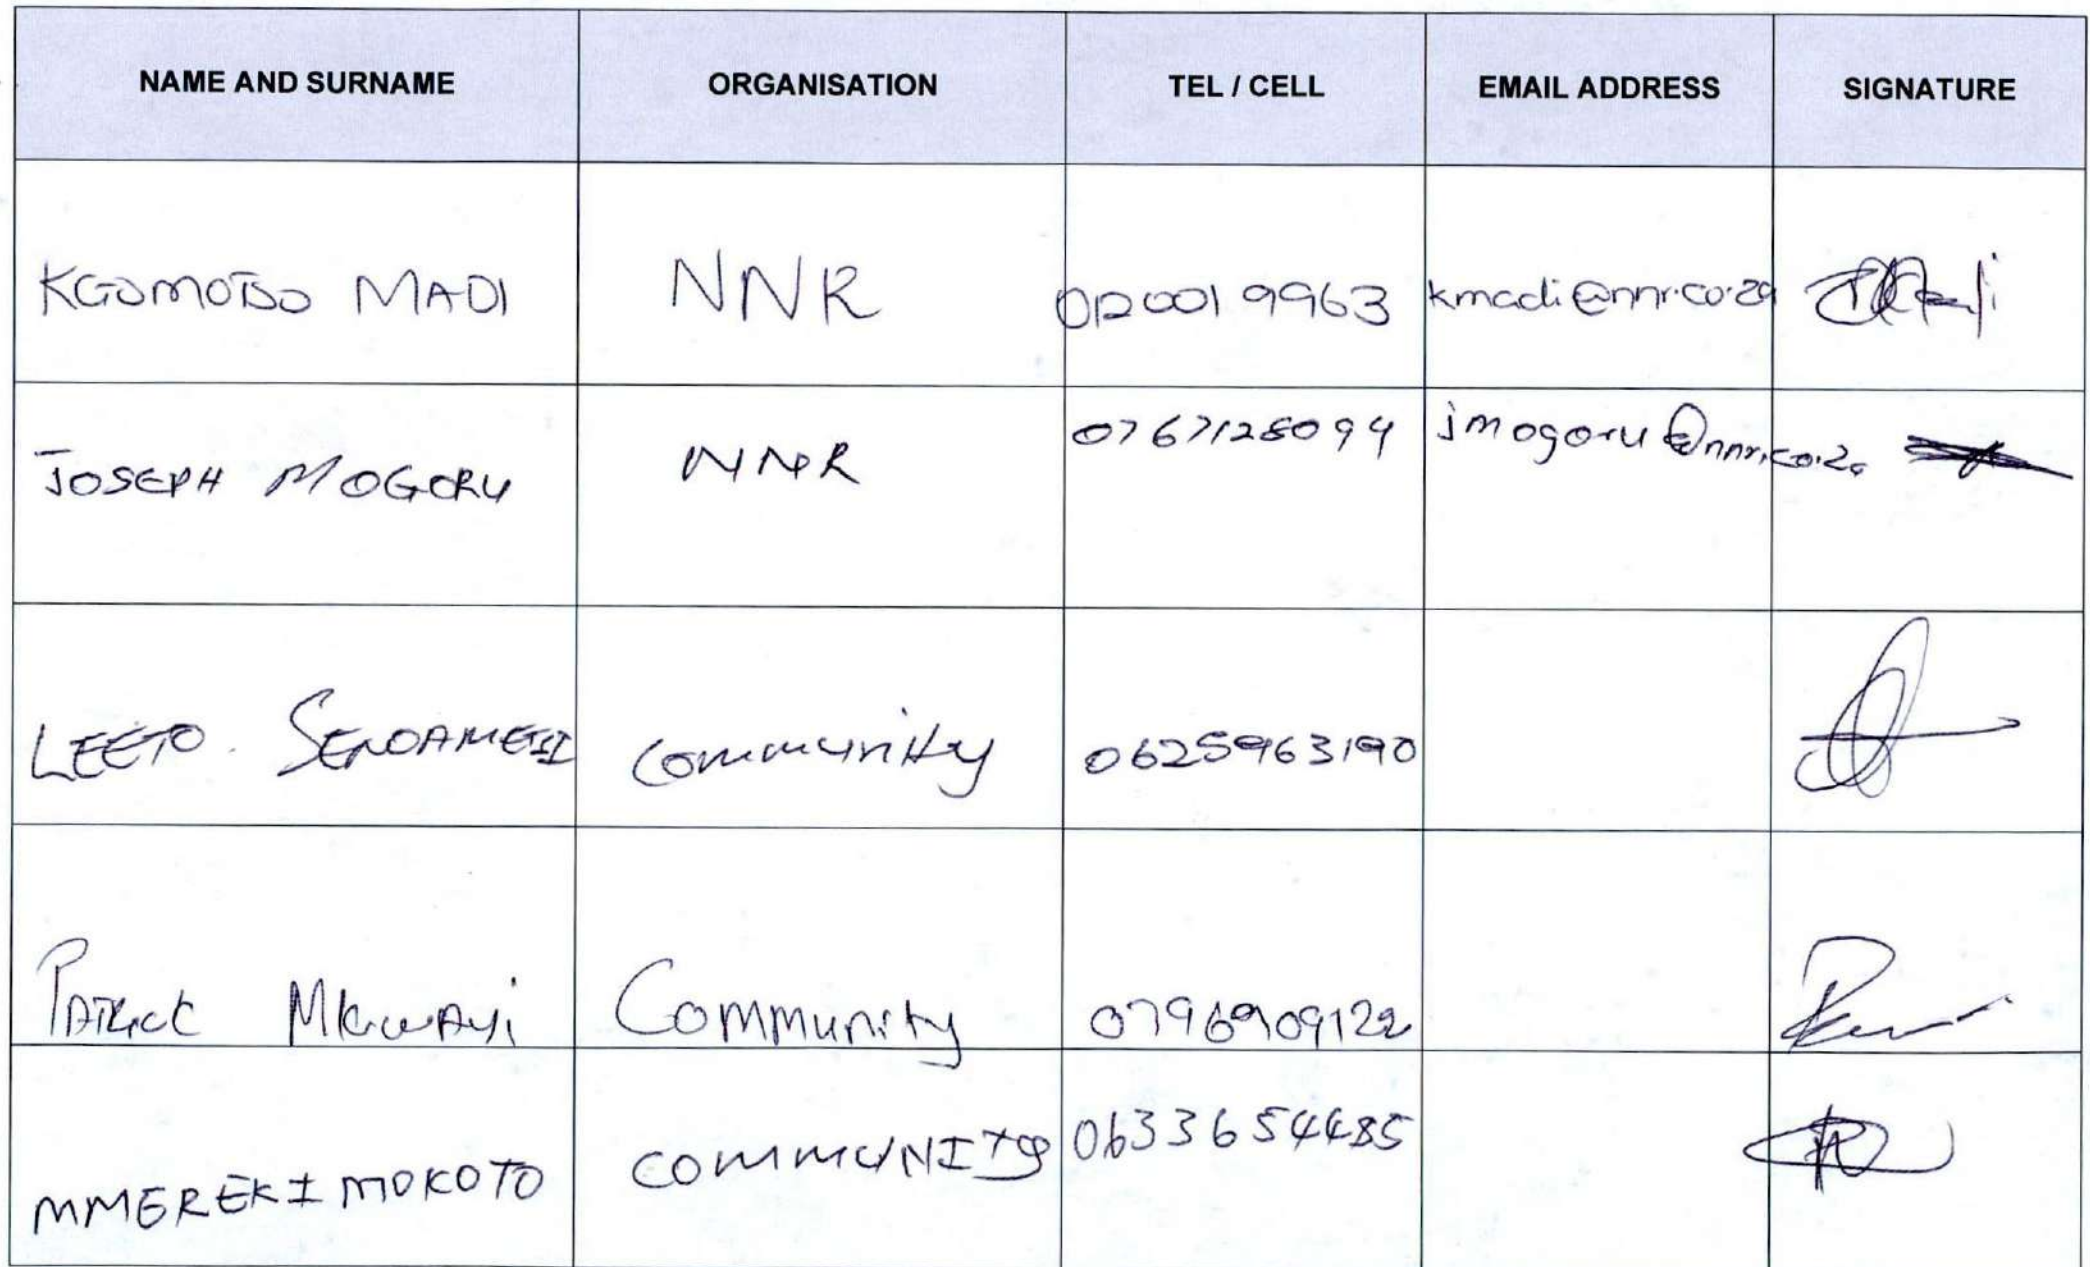 NAME AND SURNAME ORGANISATION TEL / CELL EMAIL ADDRESS SIGNATURE
KGOMOTSO MADI NNR 0120019963 kmadi@nnr.co.za
JOSEPH MOGORU NNR 0767128094 jmogoru@nnr.co.za
LEETO. Community 0625963190
Patrick Mkwayi Community 0796909122
MMEREKI MOKOTO COMMUNITY 0633654485